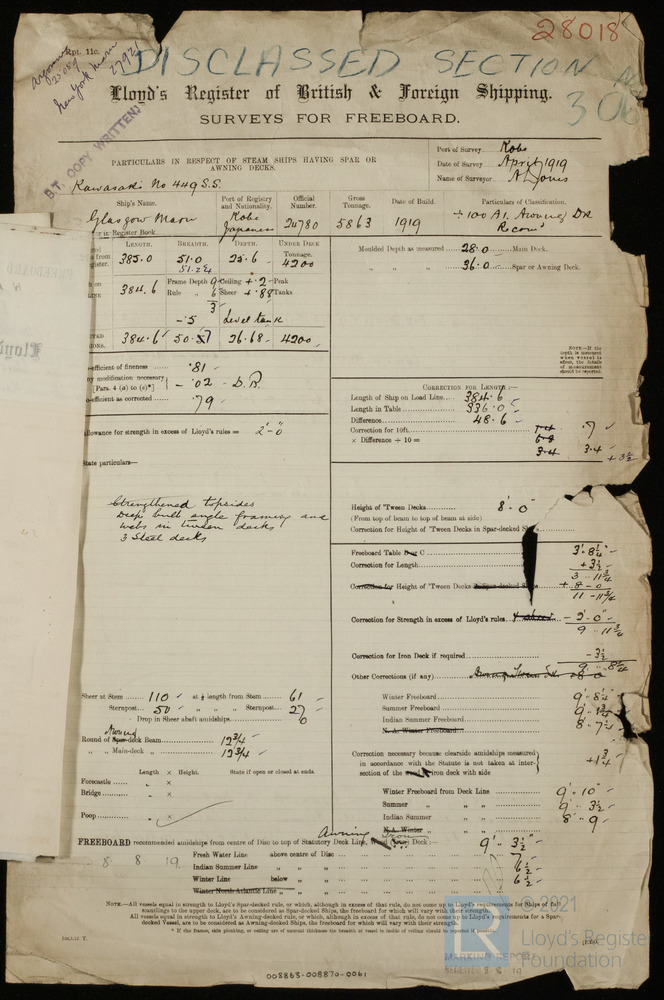 Rpt. 11c.
28018
DISCLASSED SECTION
306
New York
B.T. COPY WRITTEN
Lloyd's Register of British & Foreign Shipping.
SURVEYS FOR FREEBOARD.
PARTICULARS IN RESPECT OF STEAM SHIPS HAVING SPAR OR AWNING DECKS.
Port of Survey Kobe
Date of Survey April 1919
Name of Surveyor A. L. Jones
Kawasaki No 449 S.S.
Ship's Name. Port of Registry and Nationality. Official Number. Gross Tonnage. Date of Build. Particulars of Classification.
Glasgow Maru Kobe Japanese 24780 5863 1919 +100 A1. Awning Dk
Register Book
LENGTH. BREADTH. DEPTH. UNDER DECK TONNAGE.
385.0 51.0 25.6 4200
51.24
384.6 Frame Depth 9 Ceiling + .2 Peak
Rule 6 Sheer + .88 Tanks
3
- .5 Level tank
384.6 50.57 26.68 4200
Moulded Depth as measured 28.0 Main Deck.
" " " 36.0 Spar or Awning Deck.
efficient of fineness .81
modification necessary [Para. 4 (a) to (e)*] - .02 - D.B.
efficient as corrected .79
allowance for strength in excess of Lloyd's rules = 2'-0
State particulars—
Strengthened topsides
Deep bulb angle framing and
webs in tween decks
3 Steel decks
CORRECTION FOR LENGTH:—
Length of Ship on Load Line 384.6
Length in Table 336.0
Difference 48.6
Correction for 10ft. .7
× Difference ÷ 10 = 3.4 3.4
+ 3½
Height of 'Tween Decks 8'-0
(From top of beam to top of beam at side)
Correction for Height of 'Tween Decks in Spar-decked
Freeboard Table C 3'.8¼
Correction for Length + 3½
3 - 11¾
Correction for Height of 'Tween Decks + 8 - 0
11 - 11¾
Correction for Strength in excess of Lloyd's rules. - 2'-0"
9 .. 11¾
Correction for Iron Deck if required - 3½
9 .. 8¼
Other Corrections (if any)
Sheer at Stem 110 at ⅛ length from Stem 61
Sternpost 50 " " " Sternpost 27
Drop in Sheer abaft amidships 0
Awning
Round of Spar-deck Beam 12¾
" " Main-deck " 12¾
Length × Height. State if open or closed at ends.
Forecastle " ×
Bridge " ×
Poop " ×
Winter Freeboard 9'. 8¼
Summer Freeboard 9'. 1¾
Indian Summer Freeboard 8'. 7¼
N. A. Winter Freeboard
Correction necessary because clearside amidships measured in accordance with the Statute is not taken at intersection of the iron deck with side + 1¾
Winter Freeboard from Deck Line 9'. 10"
Summer " " " 9'. 3½
Indian Summer " " 8'. 9
N.A. Winter "
Awning Iron
FREEBOARD recommended amidships from centre of Disc to top of Statutory Deck Line, Deck:— 9'. 3½"
8 8 19.
Fresh Water Line above centre of Disc 7
Indian Summer Line " " 6½
Winter Line below " 6½
Winter North Atlantic Line " "
NOTE.—All vessels equal in strength to Lloyd's Spar-decked rule, or which, although in excess of that rule, do not come up to Lloyd's requirements for Ships of full scantlings to the upper deck, are to be considered as Spar-decked Ships, the freeboard for which will vary with their strength.
All vessels equal in strength to Lloyd's Awning-decked rule, or which, although in excess of that rule, do not come up to Lloyd's requirements for a Spar-decked Vessel, are to be considered as Awning-decked Ships, the freeboard for which will vary with their strength.
© 2021
Lloyd's Register
Foundation
MARKING REPORT
008863-008870-0061